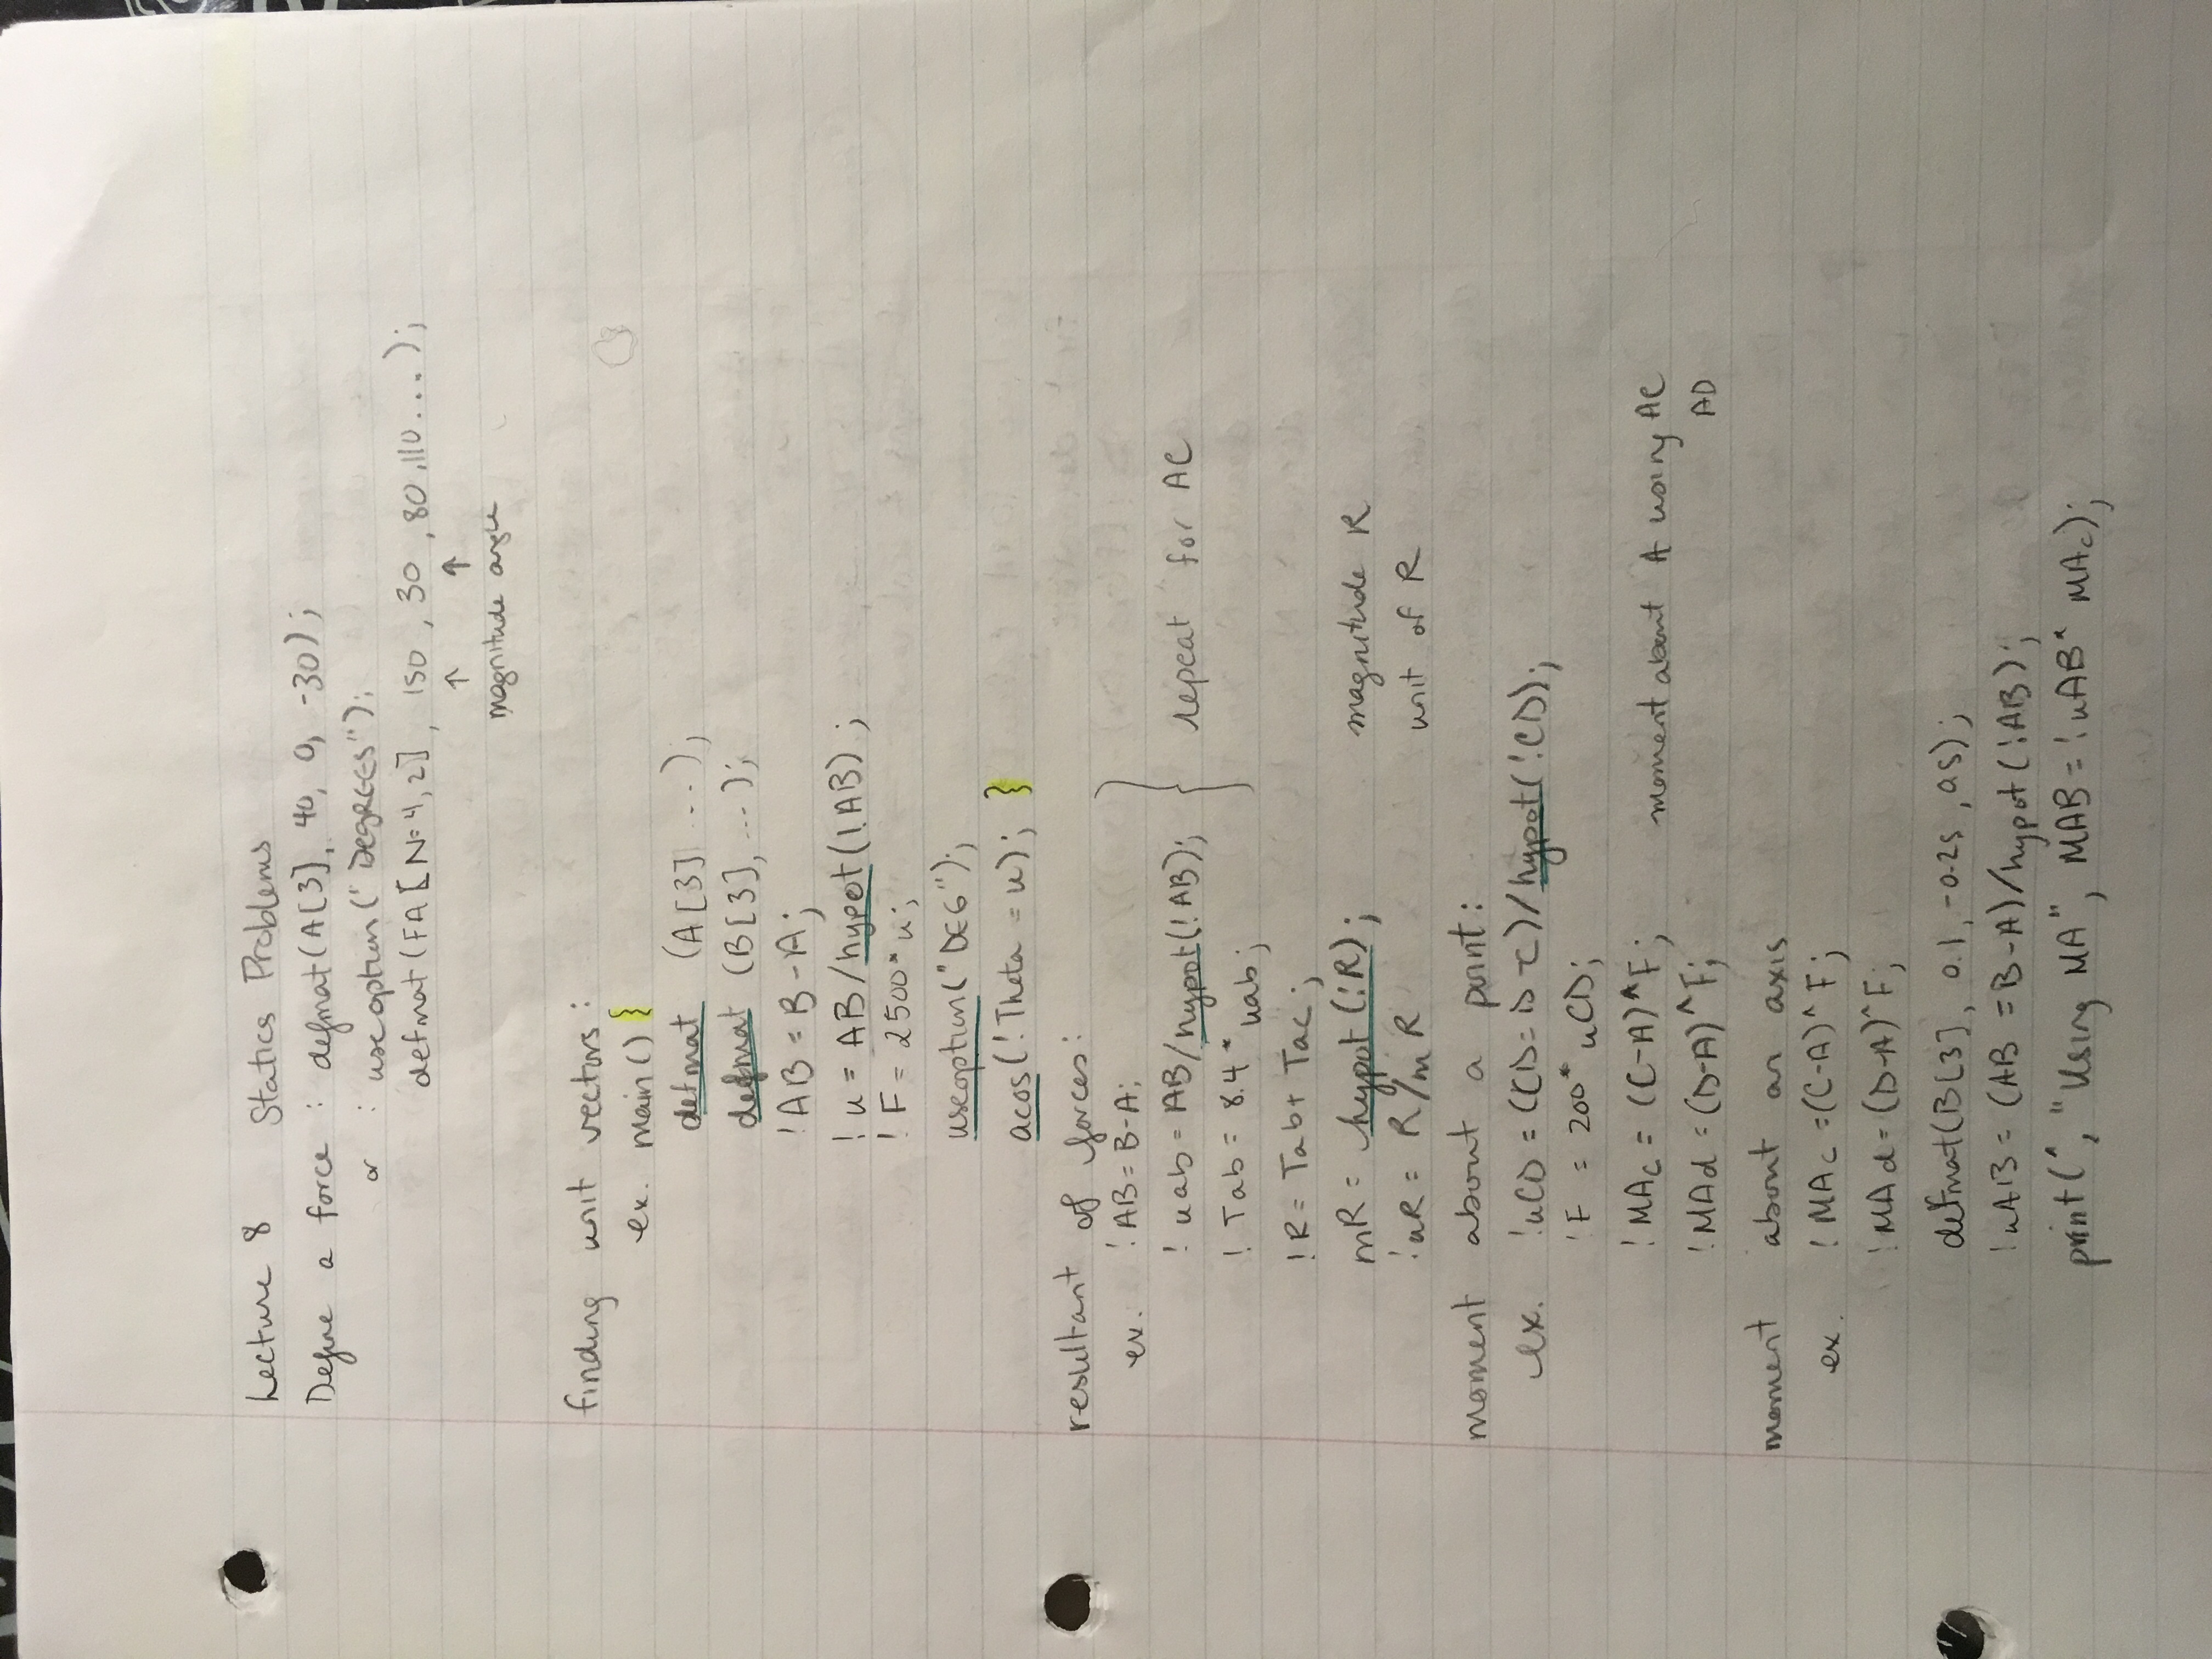 Lecture 8 Statics Problems
Define a force : defmat(A[3], 40, 0, -30);
or : useoption("DEGREES");
defmat(FA[N=4,2], 150, 30, 80, 110...);
↑ ↑
magnitude angle
finding unit vectors:
ex. main() {
defmat (A[3] ...);
defmat (B[3], ...);
!AB = B-A;
!u = AB/hypot(!AB);
!F = 2500*u;
useoption("DEG");
acos(!Theta = u); }
resultant of forces:
ex. !AB = B-A;
!uab = AB/hypot(!AB); } repeat for AC
!Tab = 8.4*uab;
!R = Tab + Tac;
mR = hypot(!R); magnitude R
!uR = R/mR unit of R
moment about a point:
ex. !uCD = (CD = D-C)/hypot(!CD);
!F = 200*uCD;
!MAc = (C-A)^F; moment about A using AC
!MAd = (D-A)^F; AD
moment about an axis
ex. !MAc = (C-A)^F;
!MAd = (D-A)^F;
defmat(B[3], 0.1, -0.25, 0.5);
!uAB = (AB = B-A)/hypot(!AB);
print(", "Using MA", MAB = !uAB* MAc);